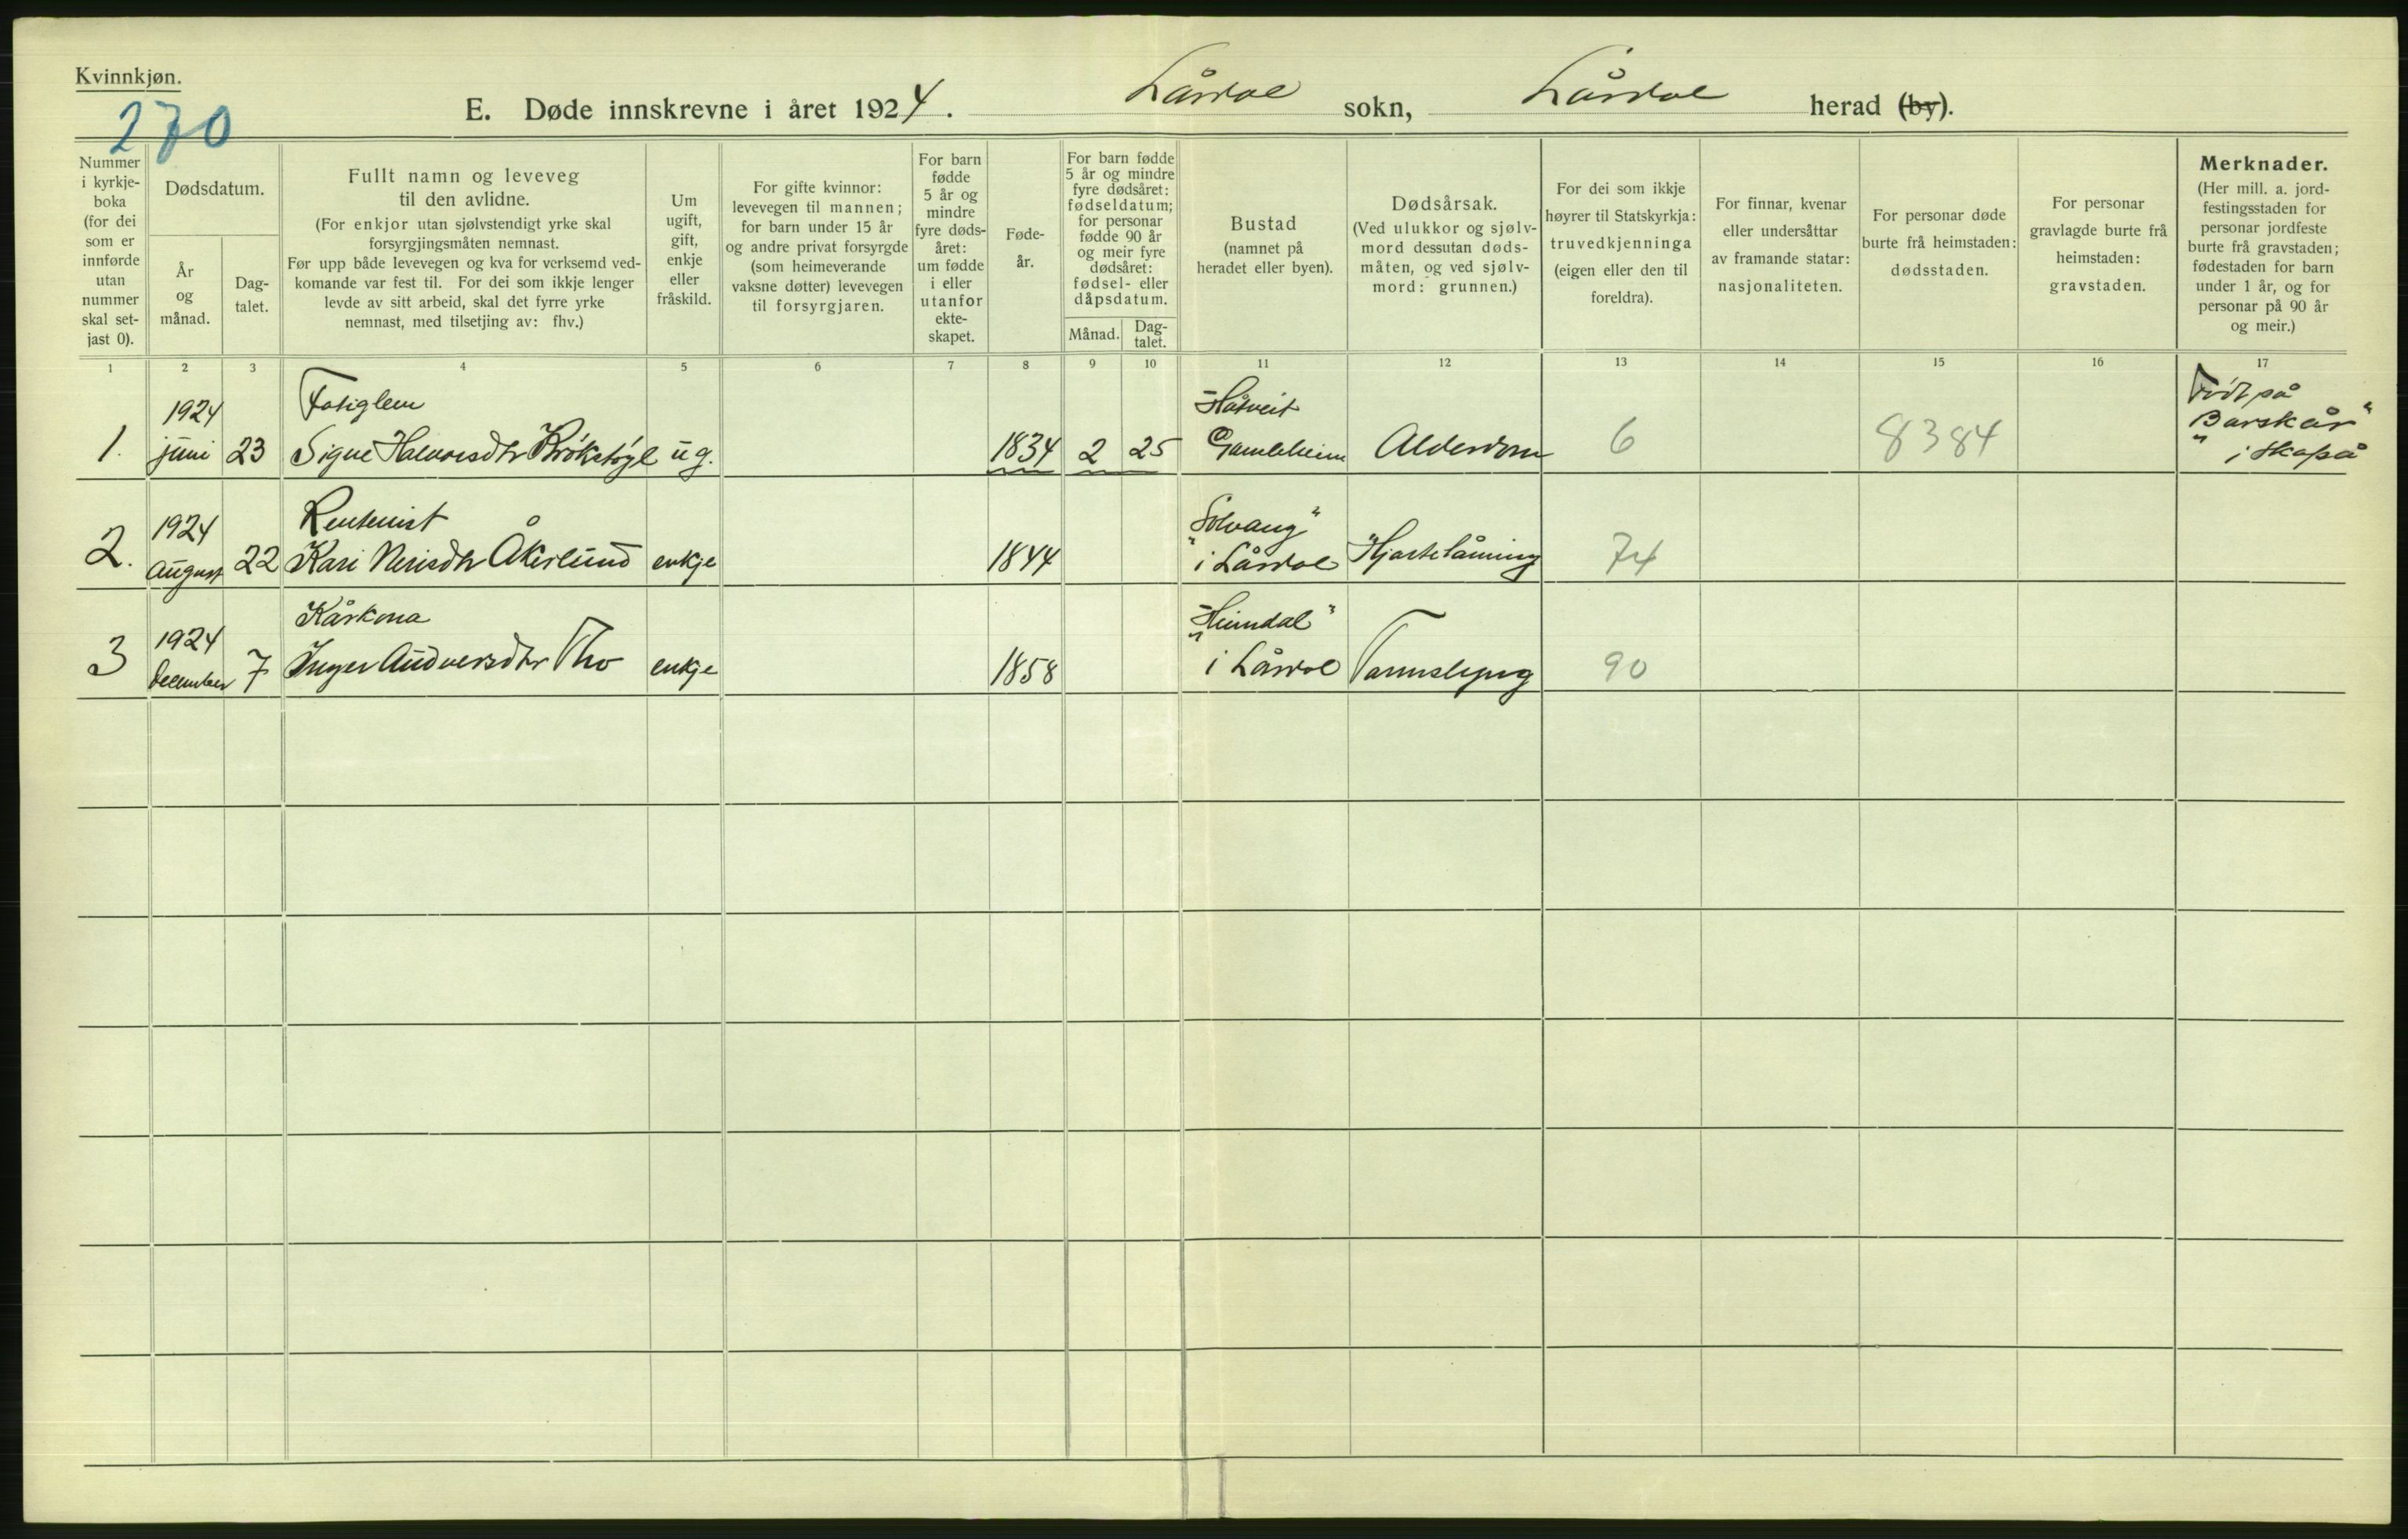 Kvinnkjøn.
270
E. Døde innskrevne i året 1924. Lårdal sokn, Lårdal herad (by).
Nummer i kyrkje-
boka
(for dei
som er
innførde
utan
nummer
skal set-
jast 0).
Dødsdatum.
År
og
månad.
Dag-
talet.
Fullt namn og leveveg
til den avlidne.
(For enkjor utan sjølvstendigt yrke skal
forsyrgjingsmåten nemnast.
Før upp både levevegen og kva for verksemd ved-
komande var fest til. For dei som ikkje lenger
levde av sitt arbeid, skal det fyrre yrke
nemnast, med tilsetjing av: fhv.)
Um
ugift,
gift,
enkje
eller
fråskild.
For gifte kvinnor:
levevegen til mannen;
for barn under 15 år
og andre privat forsyrgde
(som heimeverande
vaksne døtter) levevegen
til forsyrgjaren.
For barn
fødde
5 år og
mindre
fyre døds-
året:
um fødde
i eller
utanfor
ekte-
skapet.
Føde-
år.
For barn fødde
5 år og mindre
fyre dødsåret:
fødseldatum;
for personar
fødde 90 år
og meir fyre
dødsåret:
fødsel- eller
dåpsdatum.
Månad.
Dag-
talet.
Bustad
(namnet på
heradet eller byen).
Dødsårsak.
(Ved ulukkor og sjølv-
mord dessutan døds-
måten, og ved sjølv-
mord: grunnen.)
For dei som ikkje
høyrer til Statskyrkja:
truvedkjenninga
(eigen eller den til
foreldra).
For finnar, kvenar
eller undersåttar
av framande statar:
nasjonaliteten.
For personar døde
burte frå heimstaden:
dødsstaden.
For personar
gravlagde burte frå
heimstaden:
gravstaden.
Merknader.
(Her mill. a. jord-
festingsstaden for
personar jordfeste
burte frå gravstaden;
fødestaden for barn
under 1 år, og for
personar på 90 år
og meir.)
1 2 3 4 5 6 7 8 9 10 11 12 13 14 15 16 17
1924 Fatiglem Håtveit Født på
"Barskår"
1. juni 23 Signe Halvorsdtr ug. 1834 2 25 Gamleheim Alderdom 6 8384 i Skafså
1924 Rentenist "Solvang"
2. August 22 Kari Nerisdtr Åkerlund enkje 1844 i Lårdal Hjartelåming 74
1924 Kårkona "Heimdal"
3 December 7 Inger Audversdtr Tho enkje 1858 i Lårdal Tarmslyng 90